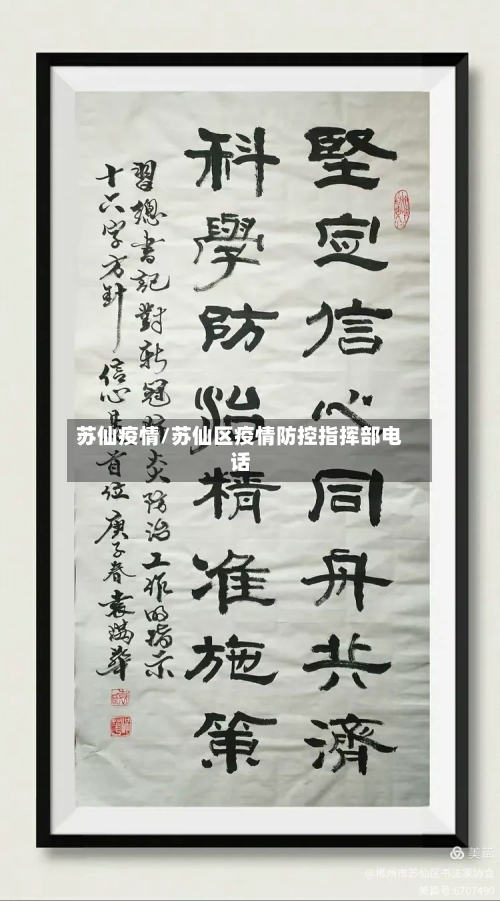 堅定信心同舟共濟
科學防治精准施策
習總書記對新冠肺炎防治工作的指示
十六字方針信心是首位庚子春袁滿華
苏仙疫情/苏仙区疫情防控指挥部电
话
美篇
@郴州市苏仙区书法家协会
美篇号:6707490